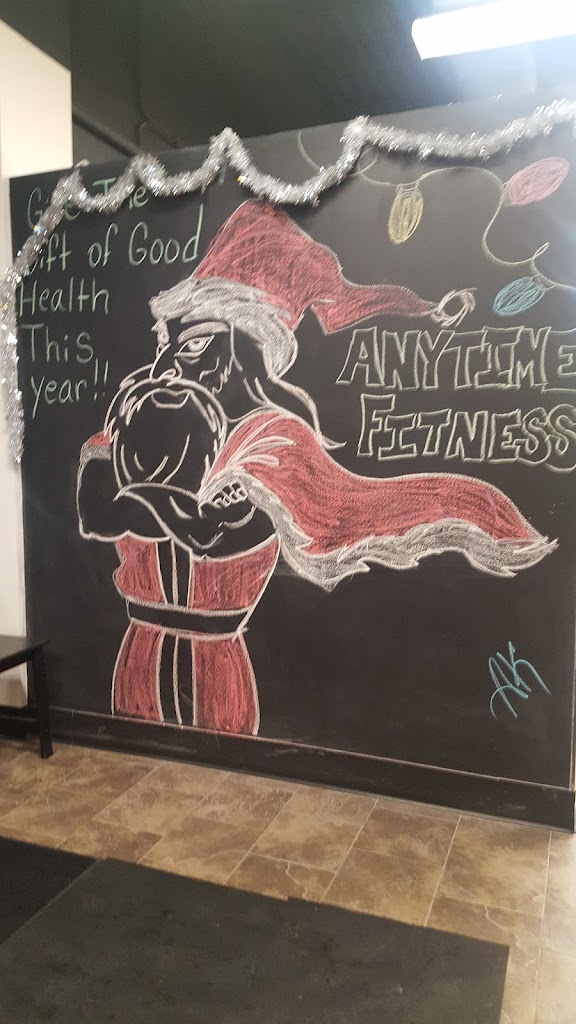 Give The
Gift of Good
Health
This
year!!
ANYTIME
FITNESS
AK